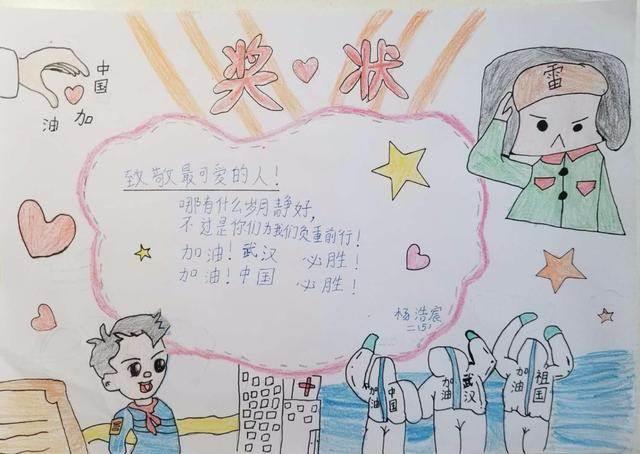 奖状
中国
加油
雷
致敬最可爱的人！
哪有什么岁月静好，
不过是你们为我们负重前行！
加油！武汉 必胜！
加油！中国 必胜！
杨浩宸
二(5)
加油 中国
加油 武汉
加油 祖国